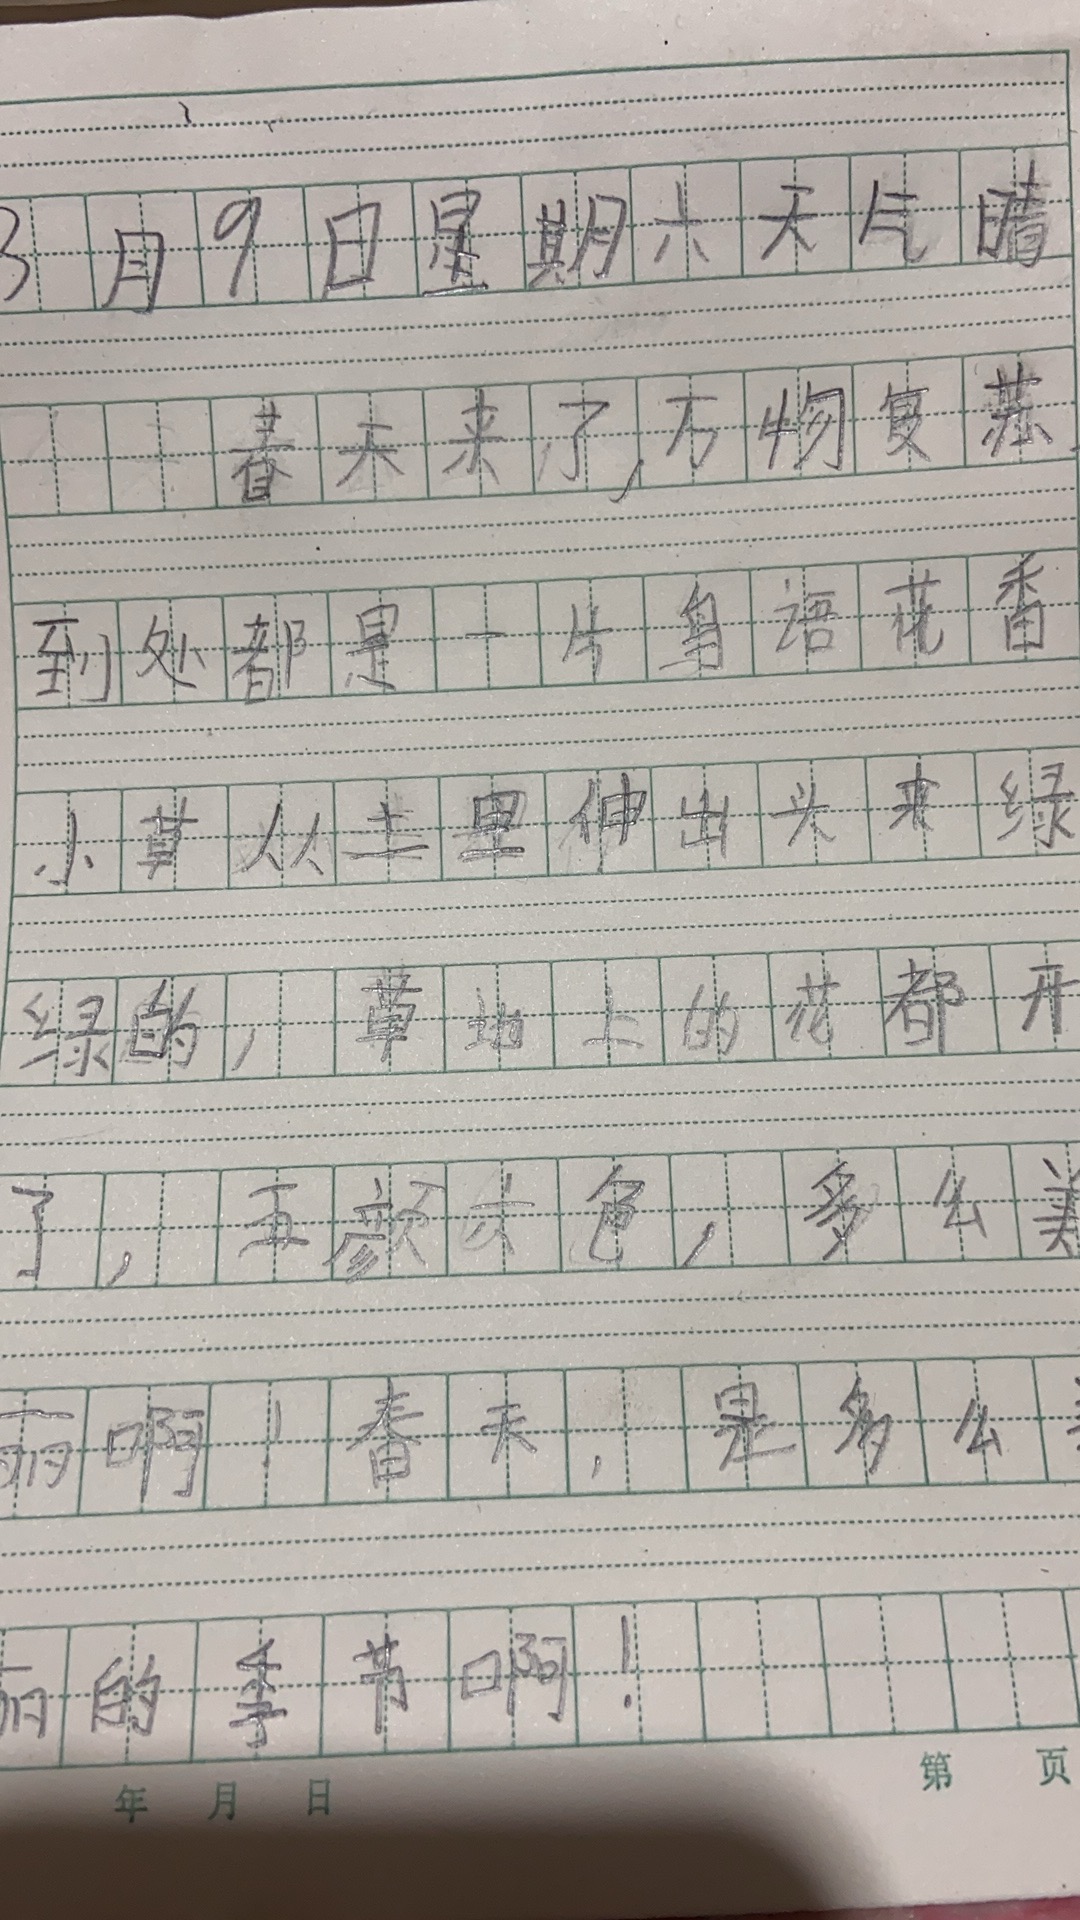 3月9日星期六天气晴
春天来了,万物复苏
到处都是一片鸟语花香
小草从土里伸出头来绿
绿的,草地上的花都开
了,五颜六色,多么美
丽啊!春天,是多么美
丽的季节啊!
年 月 日 第 页